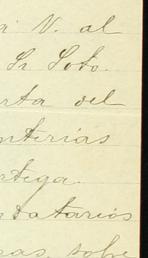 a V. al
Sr Soto.
rta del
nterias
rtega.
ndatarios
ras, sobre